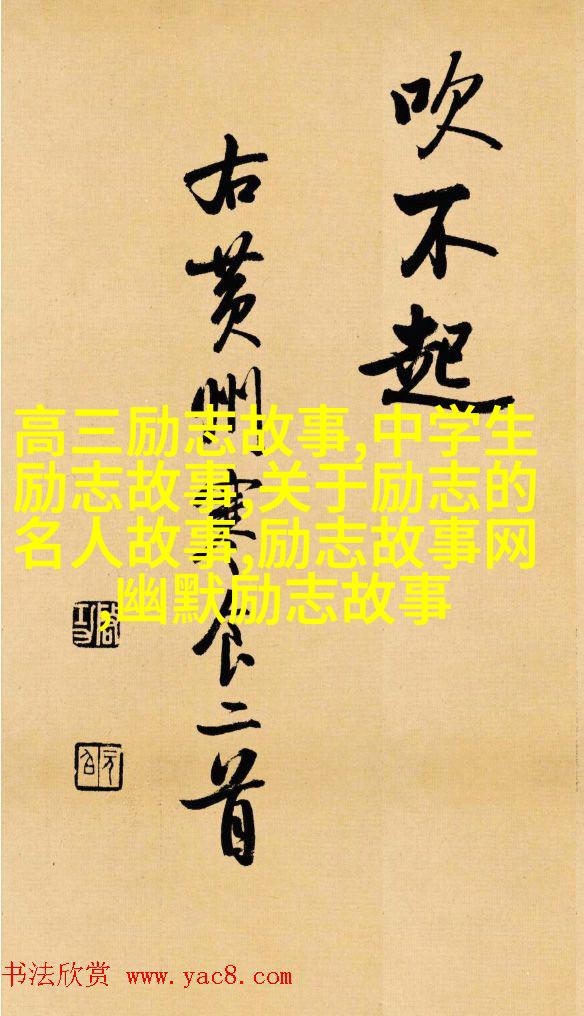 吹不起
右黄州寒食二首
高三励志故事,中学生
励志故事,关于励志的
名人故事,励志故事网
,幽默励志故事
书法欣赏 www.yac8.com